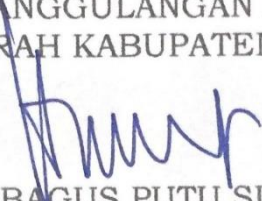 ANGGULANGAN
RAH KABUPATEN
BAGUS PUTU SU